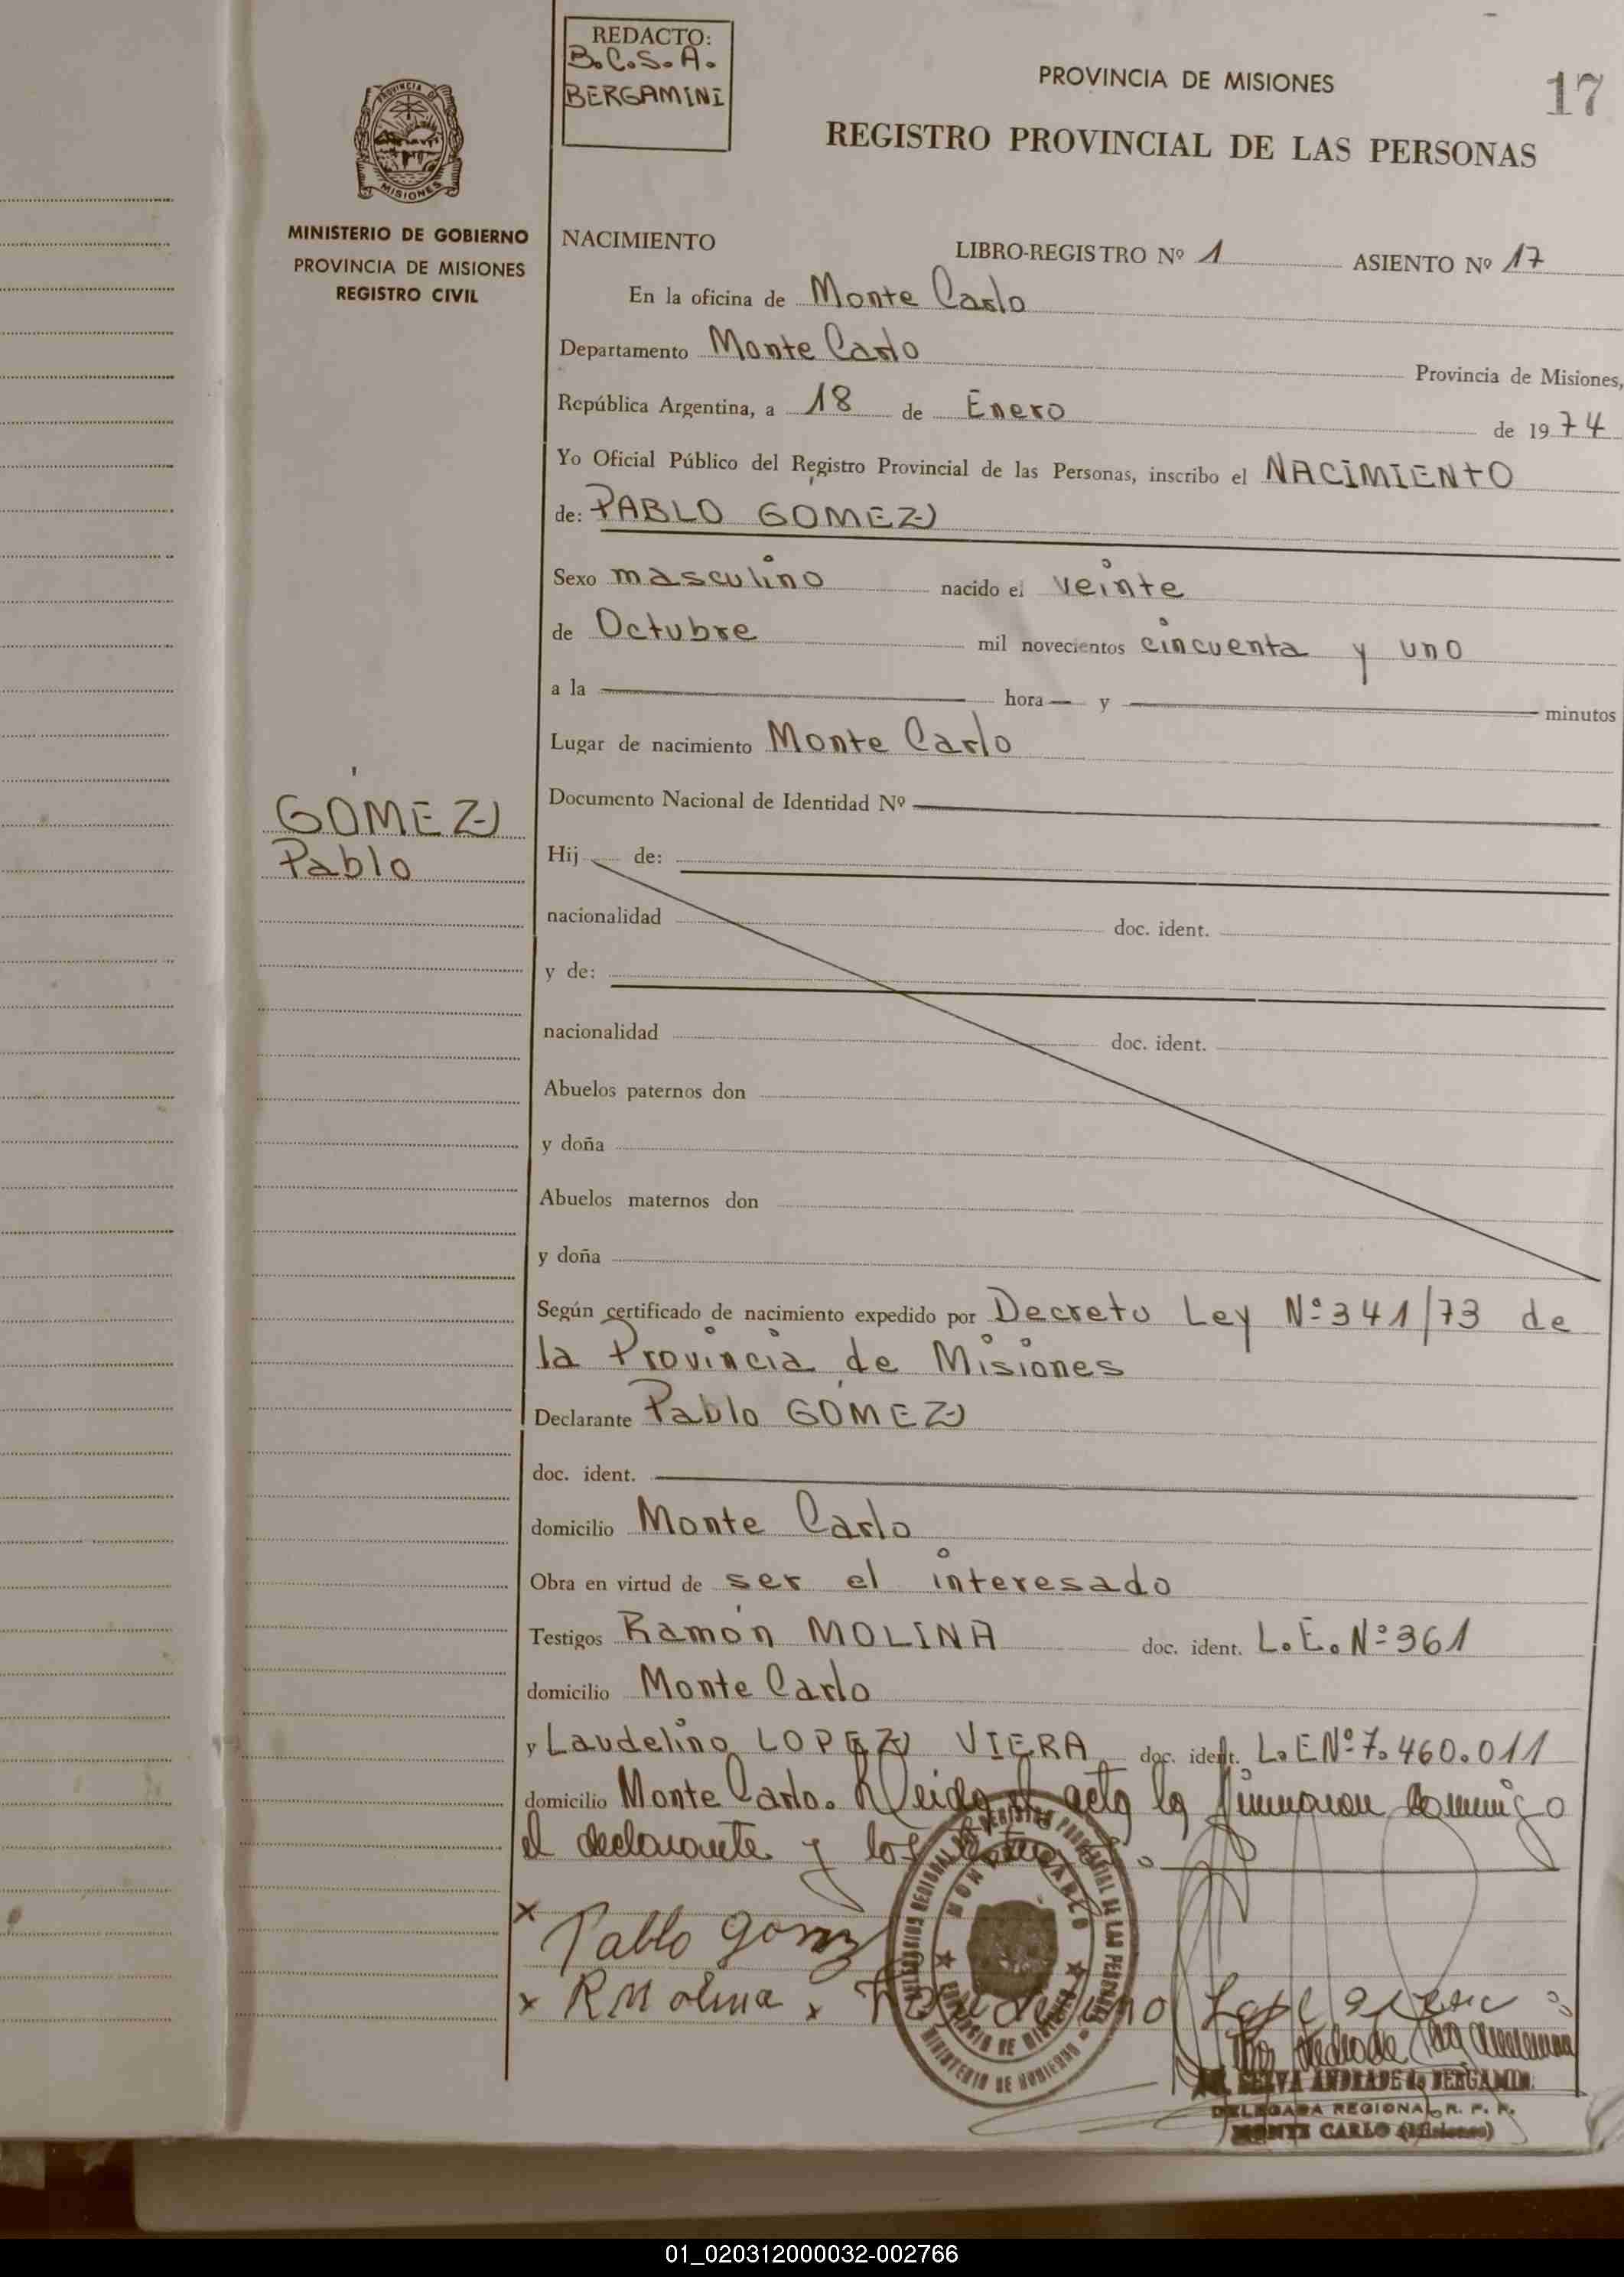 REDACTO:
B.C.S.A.
BERGAMINI
PROVINCIA DE MISIONES
17
REGISTRO PROVINCIAL DE LAS PERSONAS
PROVINCIA DE
MISIONES
MINISTERIO DE GOBIERNO
PROVINCIA DE MISIONES
REGISTRO CIVIL
NACIMIENTO LIBRO-REGISTRO Nº 1 ASIENTO Nº 17
En la oficina de Monte Carlo
Departamento Monte Carlo Provincia de Misiones,
República Argentina, a 18 de Enero de 1974
Yo Oficial Público del Registro Provincial de las Personas, inscribo el NACIMIENTO
de: PABLO GOMEZ
Sexo masculino nacido el veinte
de Octubre mil novecientos cincuenta y uno
a la hora y minutos
Lugar de nacimiento Monte Carlo
Documento Nacional de Identidad Nº
GÓMEZ
Pablo
Hij de:
nacionalidad doc. ident.
y de:
nacionalidad doc. ident.
Abuelos paternos don
y doña
Abuelos maternos don
y doña
Según certificado de nacimiento expedido por Decreto Ley Nº 341/73 de
la Provincia de Misiones
Declarante Pablo GÓMEZ
doc. ident.
domicilio Monte Carlo
Obra en virtud de ser el interesado
Testigos Ramón MOLINA doc. ident. L.E. Nº 361
domicilio Monte Carlo
y Laudelino LOPEZ VIERA doc. ident. L.E Nº 7.460.011
domicilio Monte Carlo. Leida el acta la firmaron conmigo
el declarante y los testigos.
x Pablo Gomez
x R Molina x
SELVA ANDRADE de BERGAMINI
DELEGADA REGIONAL R. P. P.
MONTE CARLO (Misiones)
MINISTERIO DE GOBIERNO
01_020312000032-002766